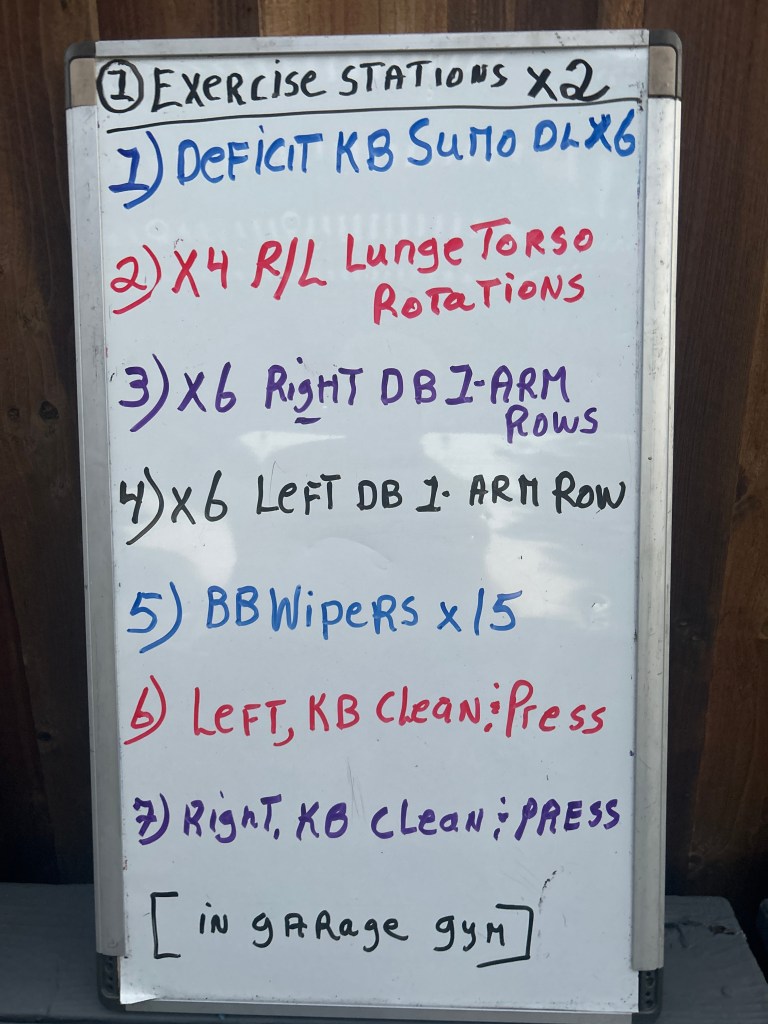 ① Exercise Stations x2
1) Deficit KB Sumo DL x6
2) x4 R/L Lunge Torso
Rotations
3) x6 Right DB 1-Arm
Rows
4) x6 Left DB 1-Arm Row
5) BB Wipers x15
6) Left, KB Clean & Press
7) Right, KB Clean & Press
[in garage gym]